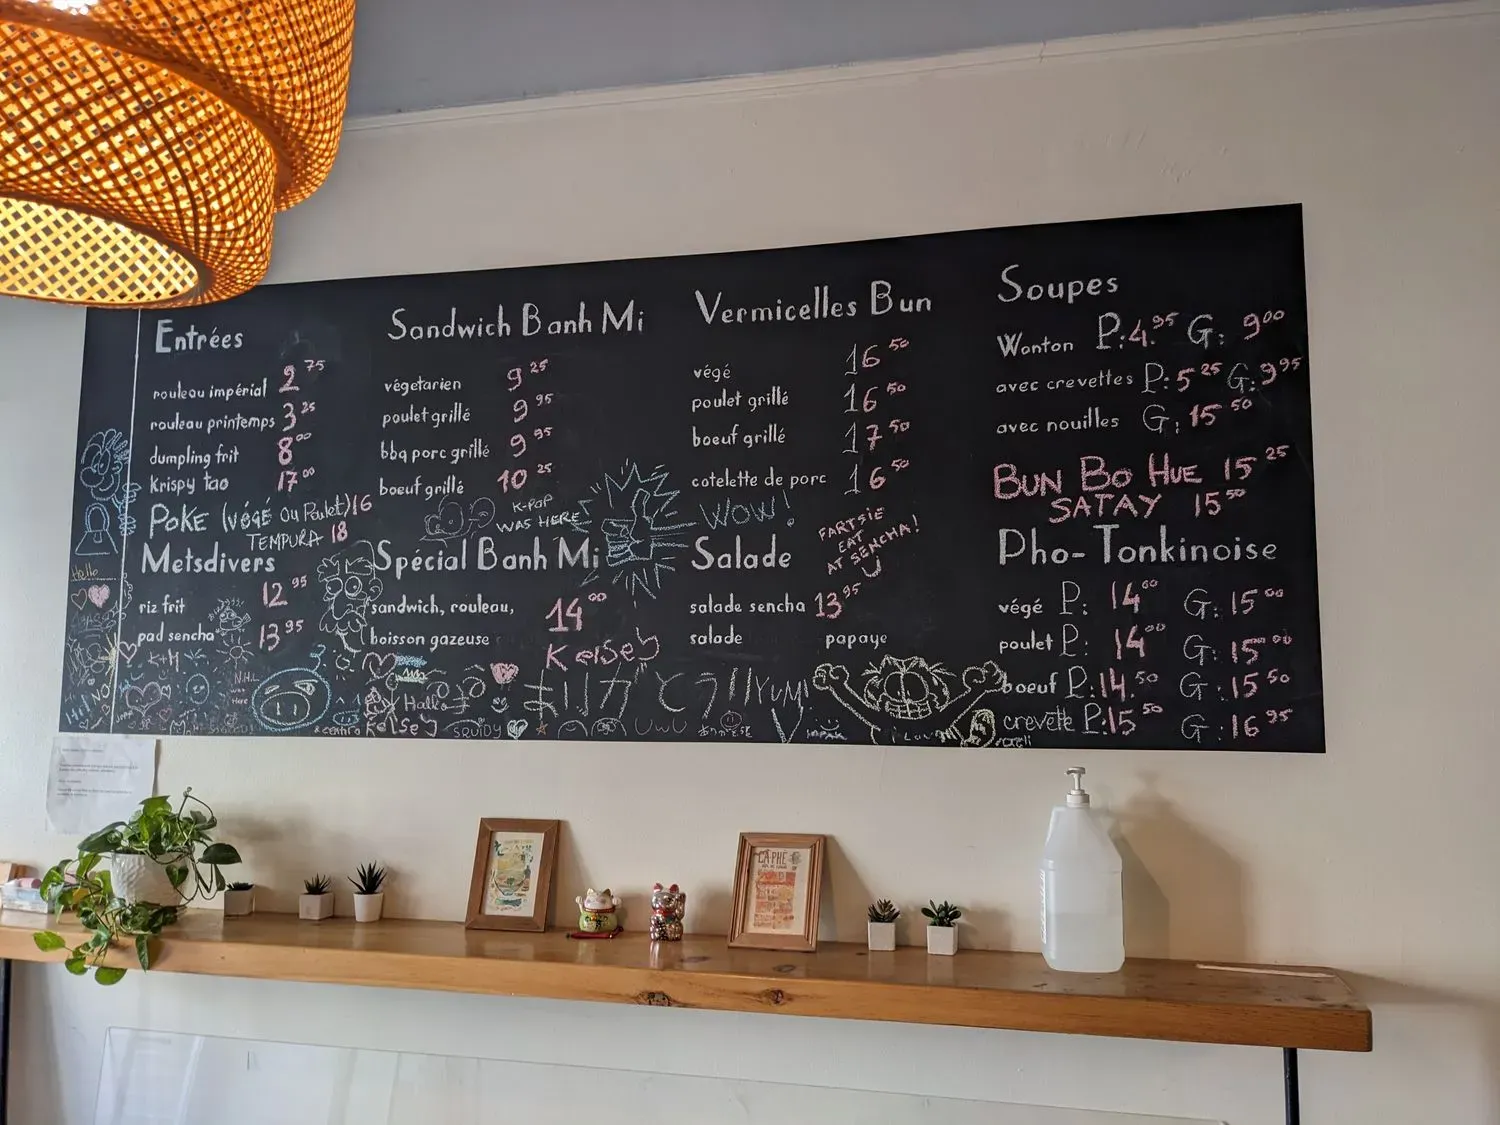 Entrées
rouleau impérial 2 75
rouleau printemps 3 25
dumpling frit 8 00
krispy tao 17 00
POKE (végé ou Poulet) 16
TEMPURA 18
Metsdivers
riz frit 12 95
pad sencha 13 95
Sandwich Banh Mi
végetarien 9 25
poulet grillé 9 95
bbq porc grillé 9 95
boeuf grillé 10 25
K-POP
WAS HERE
Spécial Banh Mi
sandwich, rouleau,
boisson gazeuse 14 00
Kelsey
Vermicelles Bun
végé 16 50
poulet grillé 16 50
boeuf grillé 17 50
cotelette de porc 16 50
WOW!
FARTSIE
EAT
AT SENCHA!
Salade
salade sencha 13 95
salade papaye
Soupes
Wonton P: 4.95 G: 9 00
avec crevettes P: 5 25 G: 9 95
avec nouilles G: 15 50
BUN BO HUE 15 25
SATAY 15 50
Pho-Tonkinoise
végé P: 14 00 G: 15 00
poulet P: 14 00 G: 15 00
boeuf P: 14.50 G: 15 50
crevette P: 15 50 G: 16 95
Hello
K+M
N.H.L
was
Here
Hallo
Kelsey
SQUIDY
UWU
YUM!
CÀ PHÊ